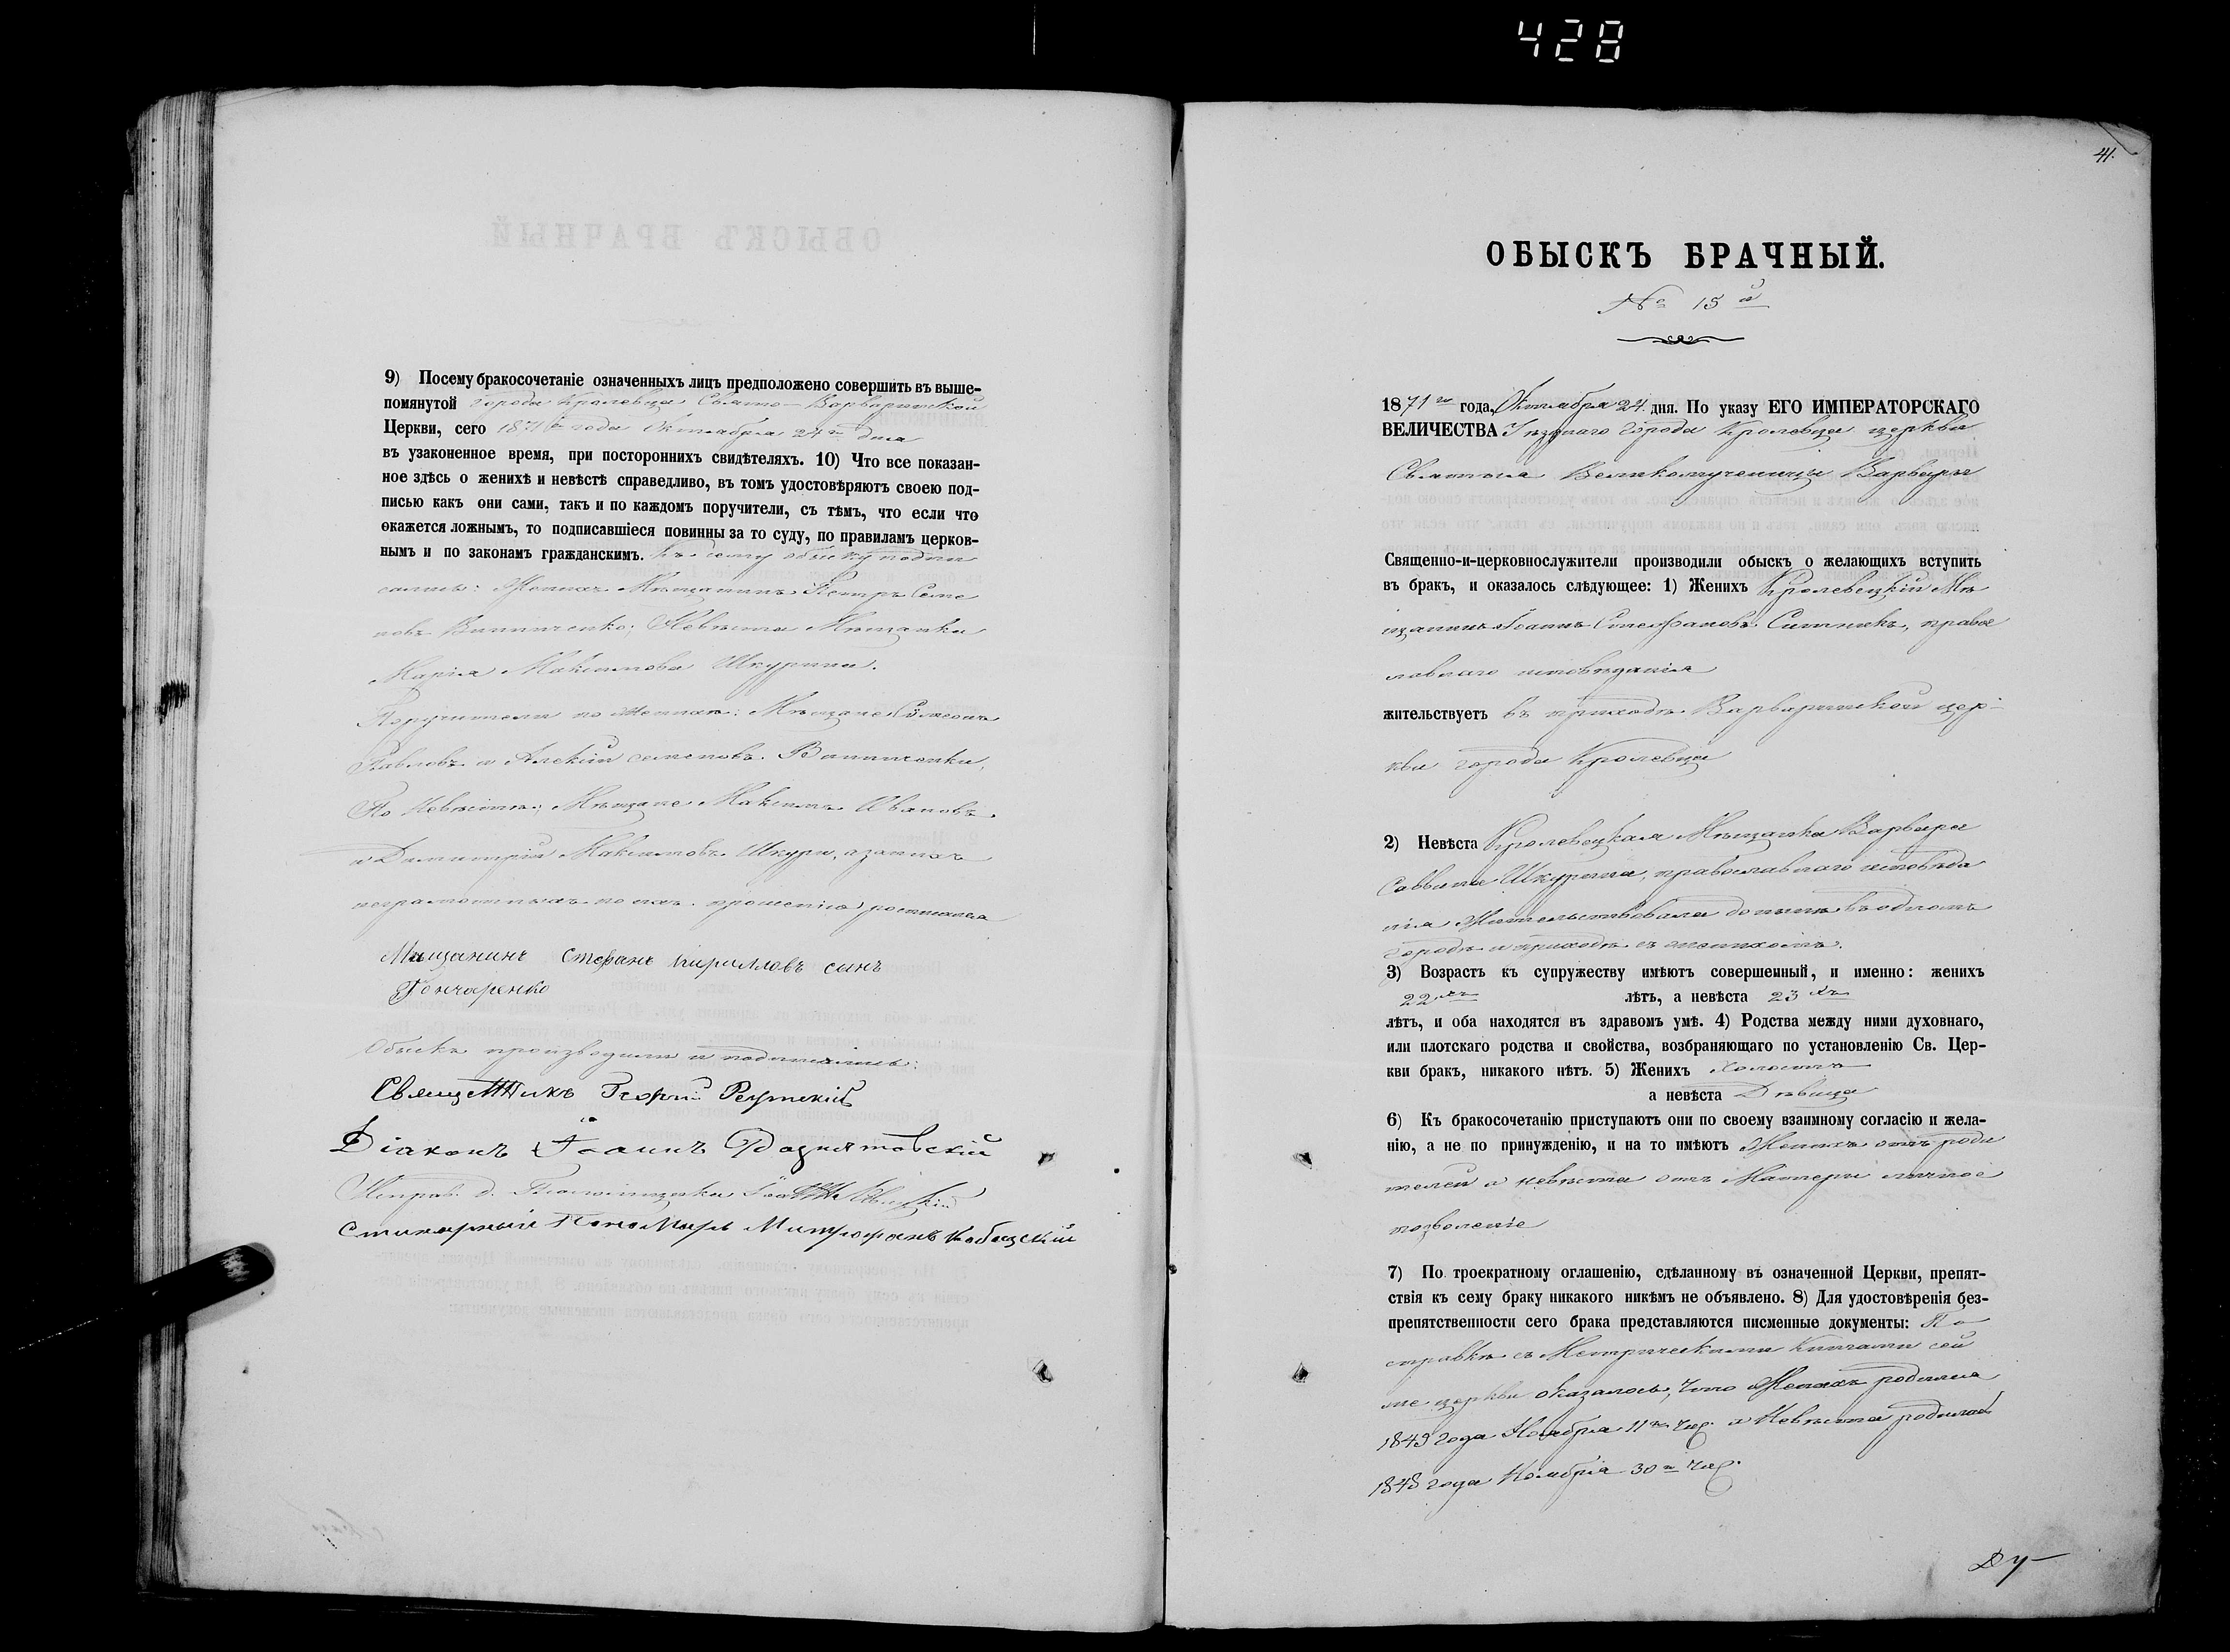 428
9) Посему бракосочетаніе означенныхъ лицъ предположено совершить въ выше-
помянутой города Кролевца Свято-Варваринской
Церкви, сего 1871го года Октября 24го дня
въ узаконенное время, при постороннихъ свидѣтеляхъ. 10) Что все показан-
ное здѣсь о женихѣ и невѣстѣ справедливо, въ томъ удостовѣряютъ своею под-
писью какъ они сами, такъ и по каждомъ поручители, съ тѣмъ, что если что
окажется ложнымъ, то подписавшіеся повинны за то суду, по правиламъ церков-
нымъ и по законамъ гражданскимъ. Къ сему обыску подпи
сались: Женихъ Мѣщанинъ Петръ Семе
новъ Винниченко; Невѣста Мѣщанка
Марія Максимова Шкурина.
Поручители по Женихѣ: Мѣщане Симеонъ
Павловъ и Алексій Семеновъ Винниченки,
По Невѣстѣ: Мѣщане Максимъ Ивановъ
и Димитрій Максимовъ Шкури, а за нихъ
неграмотныхъ по ихъ прошенію росписался
Мѣщанинъ Стефанъ Кирилловъ сынъ
Гончаренко
Обыскъ производили и подписались:
Священникъ Георгій
Діаконъ Іоаннъ
Исправ. д. Псаломщика
Стихарный Пономарь Митрофанъ
41.
ОБЫСКЪ БРАЧНЫЙ.
№ 15й
1871го года, Октября 24 дня. По указу ЕГО ИМПЕРАТОРСКАГО
ВЕЛИЧЕСТВА Уѣзднаго города Кролевца церкви
Святыя Великомученицы Варвары
Священно-и-церковнослужители производили обыскъ о желающихъ вступить
въ бракъ, и оказалось слѣдующее: 1) Женихъ Кролевецкій Мѣ
щанинъ Іоаннъ Стефановъ Ситникъ, правос
лавнаго исповѣданія
жительствуетъ въ приходѣ Варваринской цер-
кви города Кролевца
2) Невѣста Кролевецкая Мѣщанка Варвара
Саввина Шкурина, православнаго исповѣда
нія Жительствовала до нынѣ въ одномъ
городѣ и приходѣ съ женихомъ.
3) Возрастъ къ супружеству имѣютъ совершенный, и именно: женихъ
22хъ лѣтъ, а невѣста 23хъ
лѣтъ, и оба находятся въ здравомъ умѣ. 4) Родства между ними духовнаго,
или плотскаго родства и свойства, возбраняющаго по установленію Св. Цер-
кви бракъ, никакого нѣтъ. 5) Женихъ Холостъ
а невѣста Дѣвица
6) Къ бракосочетанію приступаютъ они по своему взаимному согласію и жела-
нію, а не по принужденію, и на то имѣютъ Женихъ отъ роди
телей а невѣста отъ Матери личное
позволеніе
7) По троекратному оглашенію, сдѣланному въ означенной Церкви, препят-
ствія къ сему браку никакого никѣмъ не объявлено. 8) Для удостовѣренія без-
препятственности сего брака представляются писменные документы: По
справкѣ съ Метрическими Книгами сей
же церкви оказалось, что Женихъ родился
1849 года Ноября 11го чис. а Невѣста родилась
1848 года Ноября 30го чис.
Ду-